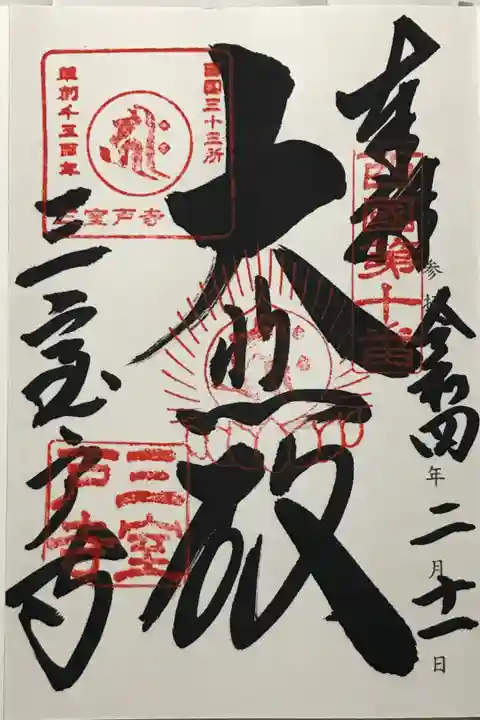 奉拝
西國第十番
参拝
令和四年二月十一日
大悲殿
西国三十三所
草創千五百年
三室戸寺
三室戸寺
三室戸寺